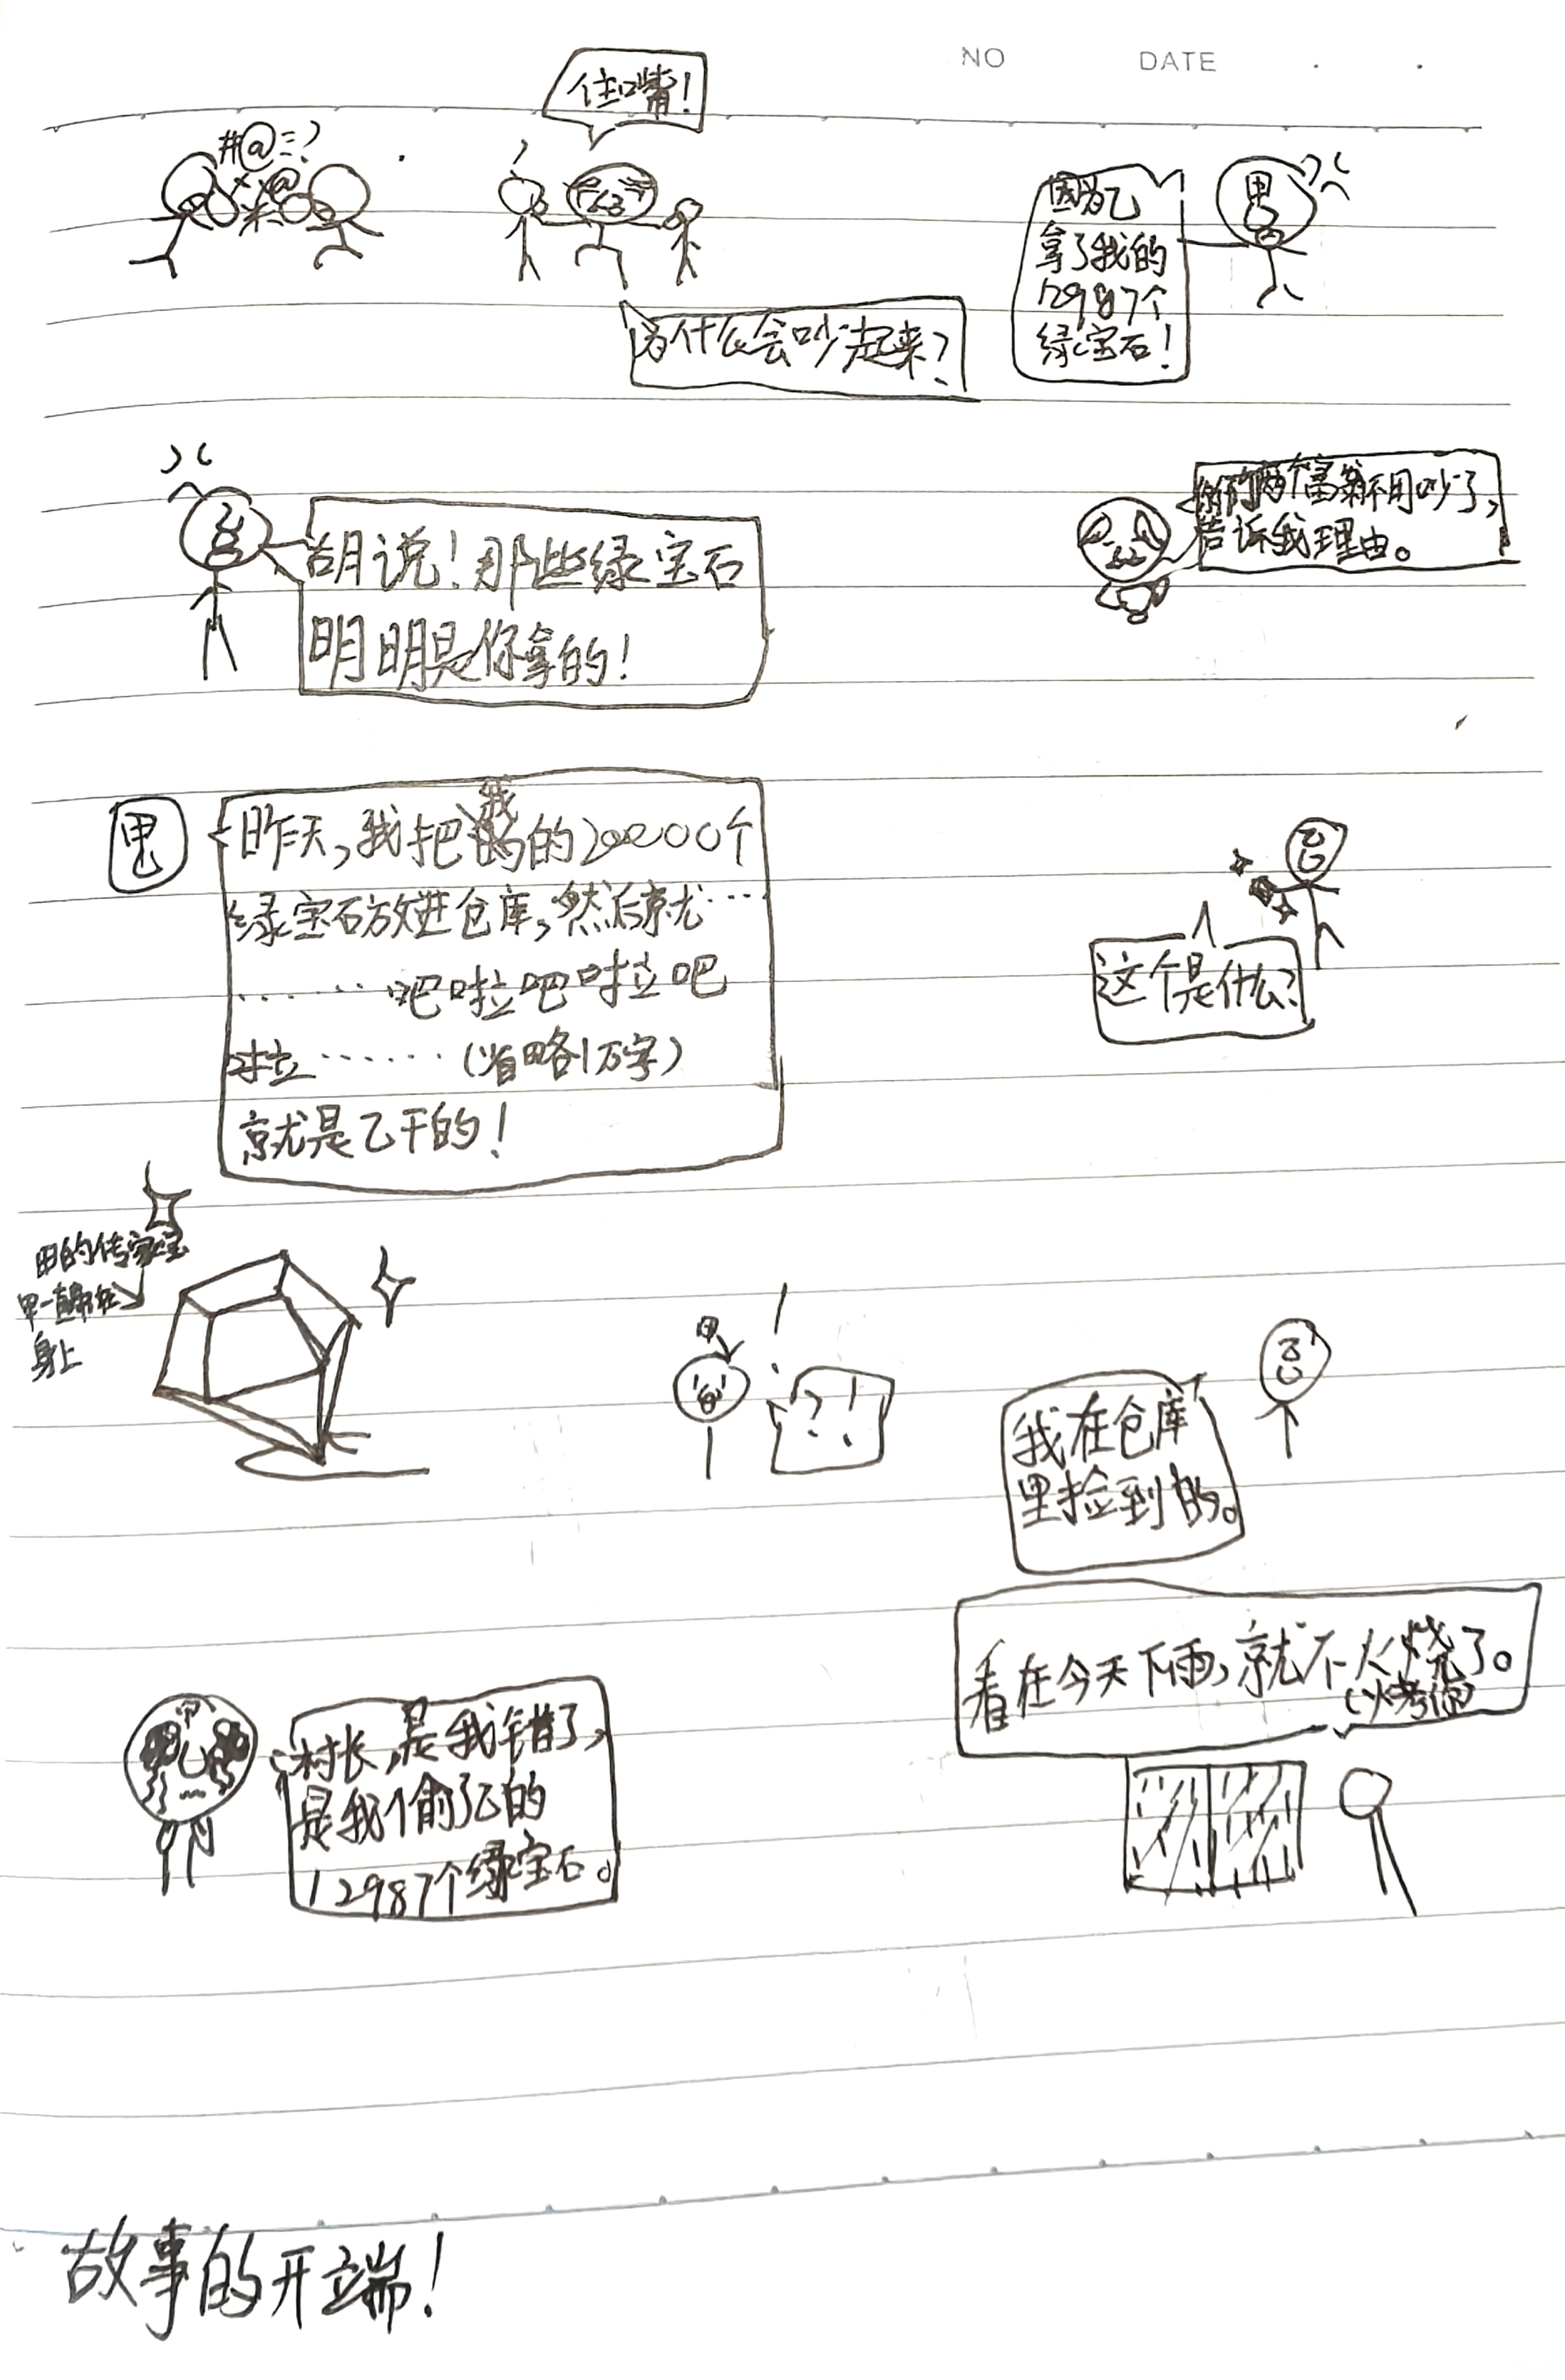 NO DATE
住嘴!
#@=?
×@
米
因为乙
拿了我的
12987个
绿宝石!
甲
为什么会吵起来?
乙
胡说!那些绿宝石
明明是你拿的!
你们两个富翁不用吵了,
告诉我理由。
甲
昨天,我把我的200000个
绿宝石放进仓库,然后就……
………吧啦吧啦吧
啦……(省略1万字)
就是乙干的!
乙
这个是什么?
甲的传家宝
甲一直带在
身上
甲
?!
乙
我在仓库
里捡到的。
甲
村长,是我错了,
是我偷了乙的
12987个绿宝石。
看在今天下雨,就不火烧了。
(火烤你)
故事的开端!